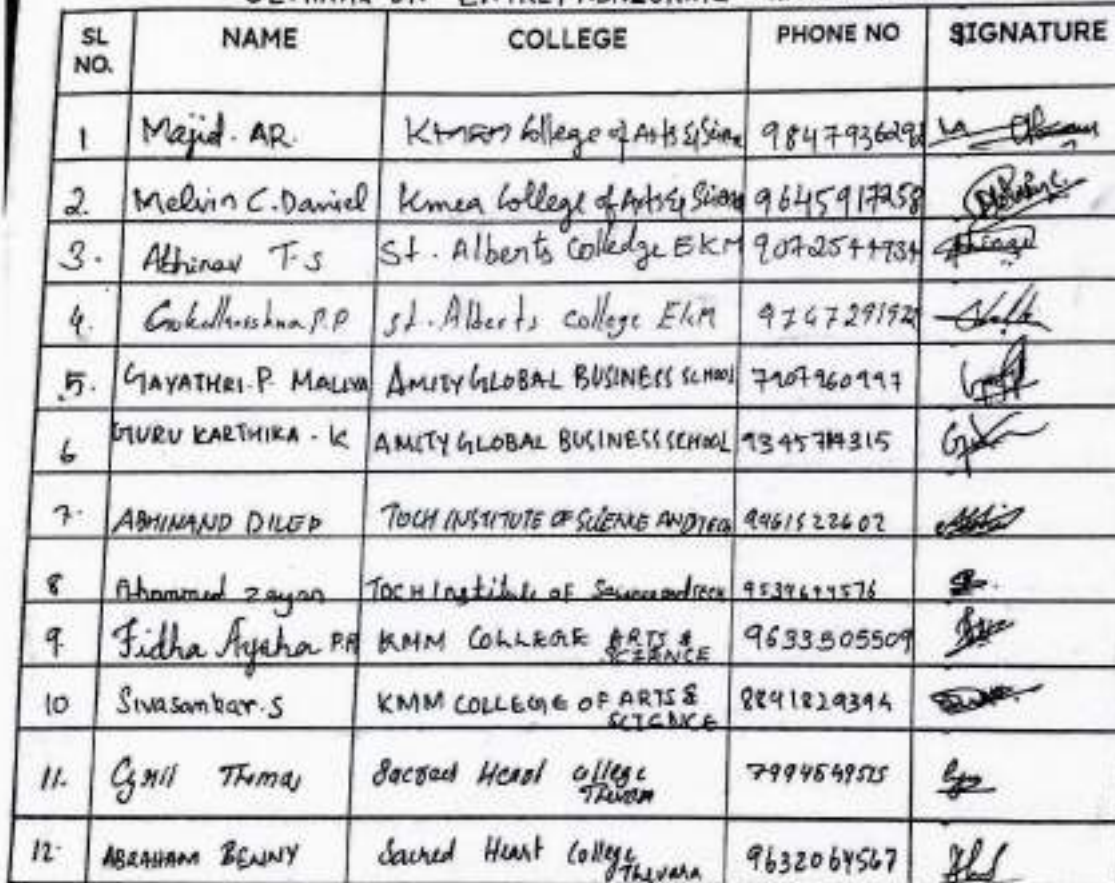 SL NO. NAME COLLEGE PHONE NO SIGNATURE
1 Majid. AR. College of Arts & 984793629
2. Melvin C. Daniel Kmea College of Arts & 9645917258
3. Abhinav T.S St. Alberts Colledge EKM
4. P.P St. Alberts College EKM
5. GAYATHRI. P. AMITY GLOBAL BUSINESS SCHOOL 7907960997
6 GURU KARTHIKA - K AMITY GLOBAL BUSINESS SCHOOL
7. ABHINAND DILEP TOCH INSTITUTE OF SCIENCE AND TECH 9961522602
8 Ahammed Zayan TOCH Institute of Science and Tech
9. Fidha Aysha P.A KMM COLLEGE ARTS & SCIENCE 9633505509
10 Sivasankar.S KMM COLLEGE OF ARTS & SCIENCE 8891829394
11. Cyril Thomas Sacred Heart College Thevara
12. ABRAHAM BENNY Sacred Heart College Thevara 9632064567